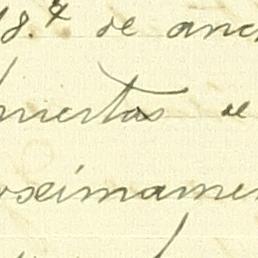 18.ª de anc
uertas de
oximamen